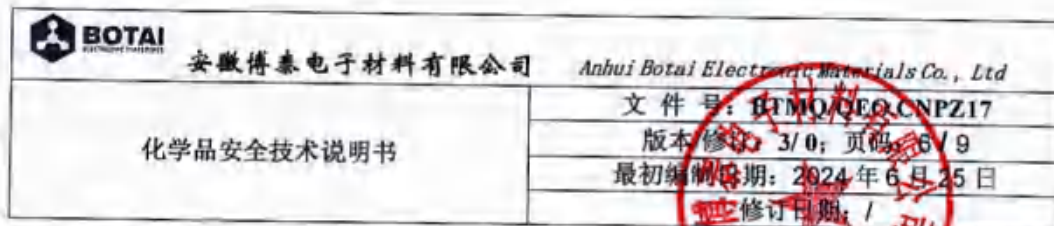 BOTAI
安徽博泰电子材料有限公司 Anhui Botai Electronic Materials Co., Ltd
化学品安全技术说明书
文 件 号: BTMQ/QEO.CNPZ17
版本/修订: 3/ 0; 页码: 6 / 9
最初编制日期: 2024 年 6 月 25 日
修订日期: /